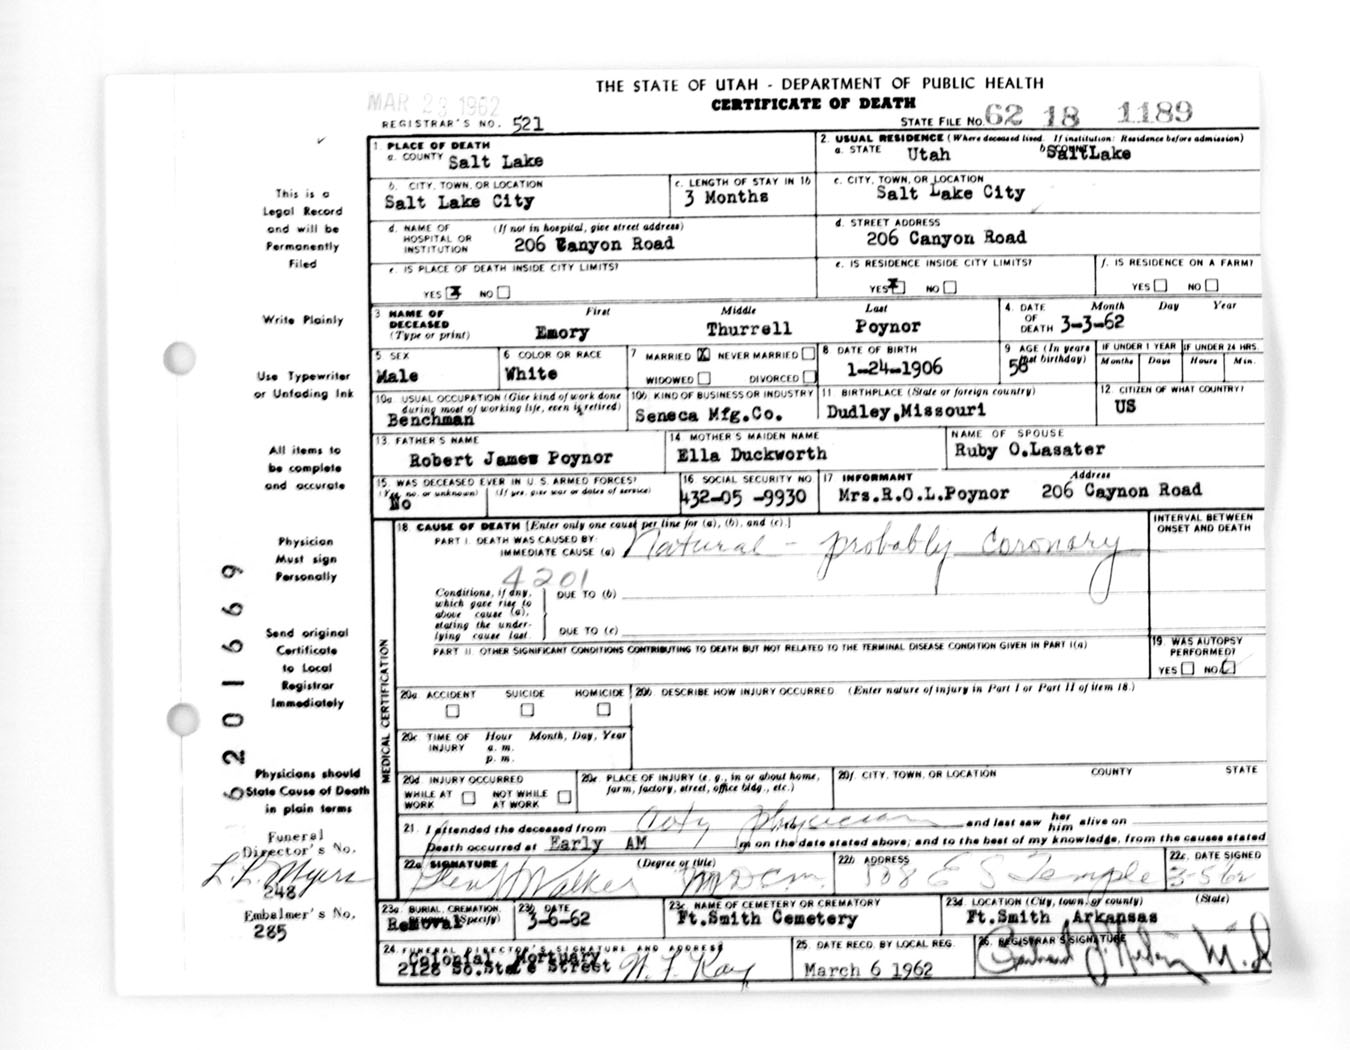 THE STATE OF UTAH - DEPARTMENT OF PUBLIC HEALTH
MAR 23 1962
CERTIFICATE OF DEATH
REGISTRAR'S NO. 521
STATE FILE NO. 62 18 1189
1 PLACE OF DEATH
a. COUNTY Salt Lake
2. USUAL RESIDENCE (Where deceased lived. If institution: Residence before admission)
a. STATE Utah b. COUNTY SaltLake
b. CITY, TOWN, OR LOCATION
Salt Lake City
c. LENGTH OF STAY IN 1b
3 Months
c. CITY, TOWN, OR LOCATION
Salt Lake City
d. NAME OF HOSPITAL OR INSTITUTION (If not in hospital, give street address)
206 Canyon Road
d. STREET ADDRESS
206 Canyon Road
e. IS PLACE OF DEATH INSIDE CITY LIMITS?
YES X NO
e. IS RESIDENCE INSIDE CITY LIMITS?
YES X NO
f. IS RESIDENCE ON A FARM?
YES NO
3 NAME OF DECEASED (Type or print)
First Middle Last
Emory Thurrell Poynor
4. DATE OF DEATH Month Day Year
3-3-62
5 SEX
Male
6 COLOR OR RACE
White
7 MARRIED X NEVER MARRIED
WIDOWED DIVORCED
8 DATE OF BIRTH
1-24-1906
9 AGE (In years last birthday)
56
IF UNDER 1 YEAR
Months Days
IF UNDER 24 HRS.
Hours Min.
10a USUAL OCCUPATION (Give kind of work done during most of working life, even if retired)
Benchman
10b KIND OF BUSINESS OR INDUSTRY
Seneca Mfg.Co.
11 BIRTHPLACE (State or foreign country)
Dudley,Missouri
12 CITIZEN OF WHAT COUNTRY?
US
13. FATHER'S NAME
Robert James Poynor
14 MOTHER'S MAIDEN NAME
Ella Duckworth
NAME OF SPOUSE
Ruby O.Lasater
15. WAS DECEASED EVER IN U. S. ARMED FORCES?
(Yes, no, or unknown) (If yes, give war or dates of service)
No
16 SOCIAL SECURITY NO.
432-05 -9930
17 INFORMANT Address
Mrs.R.O.L.Poynor 206 Caynon Road
18 CAUSE OF DEATH [Enter only one cause per line for (a), (b), and (c).]
PART I. DEATH WAS CAUSED BY:
IMMEDIATE CAUSE (a) Natural - probably coronary
INTERVAL BETWEEN ONSET AND DEATH
4201
Conditions, if any, which gave rise to above cause (a), stating the underlying cause last
DUE TO (b)
DUE TO (c)
PART II. OTHER SIGNIFICANT CONDITIONS CONTRIBUTING TO DEATH BUT NOT RELATED TO THE TERMINAL DISEASE CONDITION GIVEN IN PART I(a)
19. WAS AUTOPSY PERFORMED?
YES NO
MEDICAL CERTIFICATION
20a ACCIDENT SUICIDE HOMICIDE
20b. DESCRIBE HOW INJURY OCCURRED (Enter nature of injury in Part I or Part II of item 18.)
20c TIME OF INJURY Hour Month, Day, Year
a. m.
p. m.
20d INJURY OCCURRED
WHILE AT WORK NOT WHILE AT WORK
20e. PLACE OF INJURY (e. g., in or about home, farm, factory, street, office bldg., etc.)
20f. CITY, TOWN, OR LOCATION COUNTY STATE
21. I attended the deceased from City Physician and last saw her him alive on
Death occurred at Early AM m on the date stated above; and to the best of my knowledge, from the causes stated
22a SIGNATURE (Degree or title)
Walker
22b ADDRESS
E S Temple
22c. DATE SIGNED
3-5-62
23a. BURIAL, CREMATION, (Specify)
Removal
23b DATE
3-6-62
23c NAME OF CEMETERY OR CREMATORY
Ft.Smith Cemetery
23d. LOCATION (City, town, or county) (State)
Ft.Smith, Arkansas
24 FUNERAL DIRECTOR'S SIGNATURE AND ADDRESS
Colonial Mortuary
2128 So.State Street
25. DATE RECD. BY LOCAL REG.
March 6 1962
26. REGISTRAR'S SIGNATURE
This is a
Legal Record
and will be
Permanently
Filed
Write Plainly
Use Typewriter
or Unfading Ink
All items to
be complete
and accurate
Physician
Must sign
Personally
Send original
Certificate
to Local
Registrar
Immediately
Physicians should
State Cause of Death
in plain terms
Funeral
Director's No.
L. L. Myers
248
Embalmer's No.
285
6201669